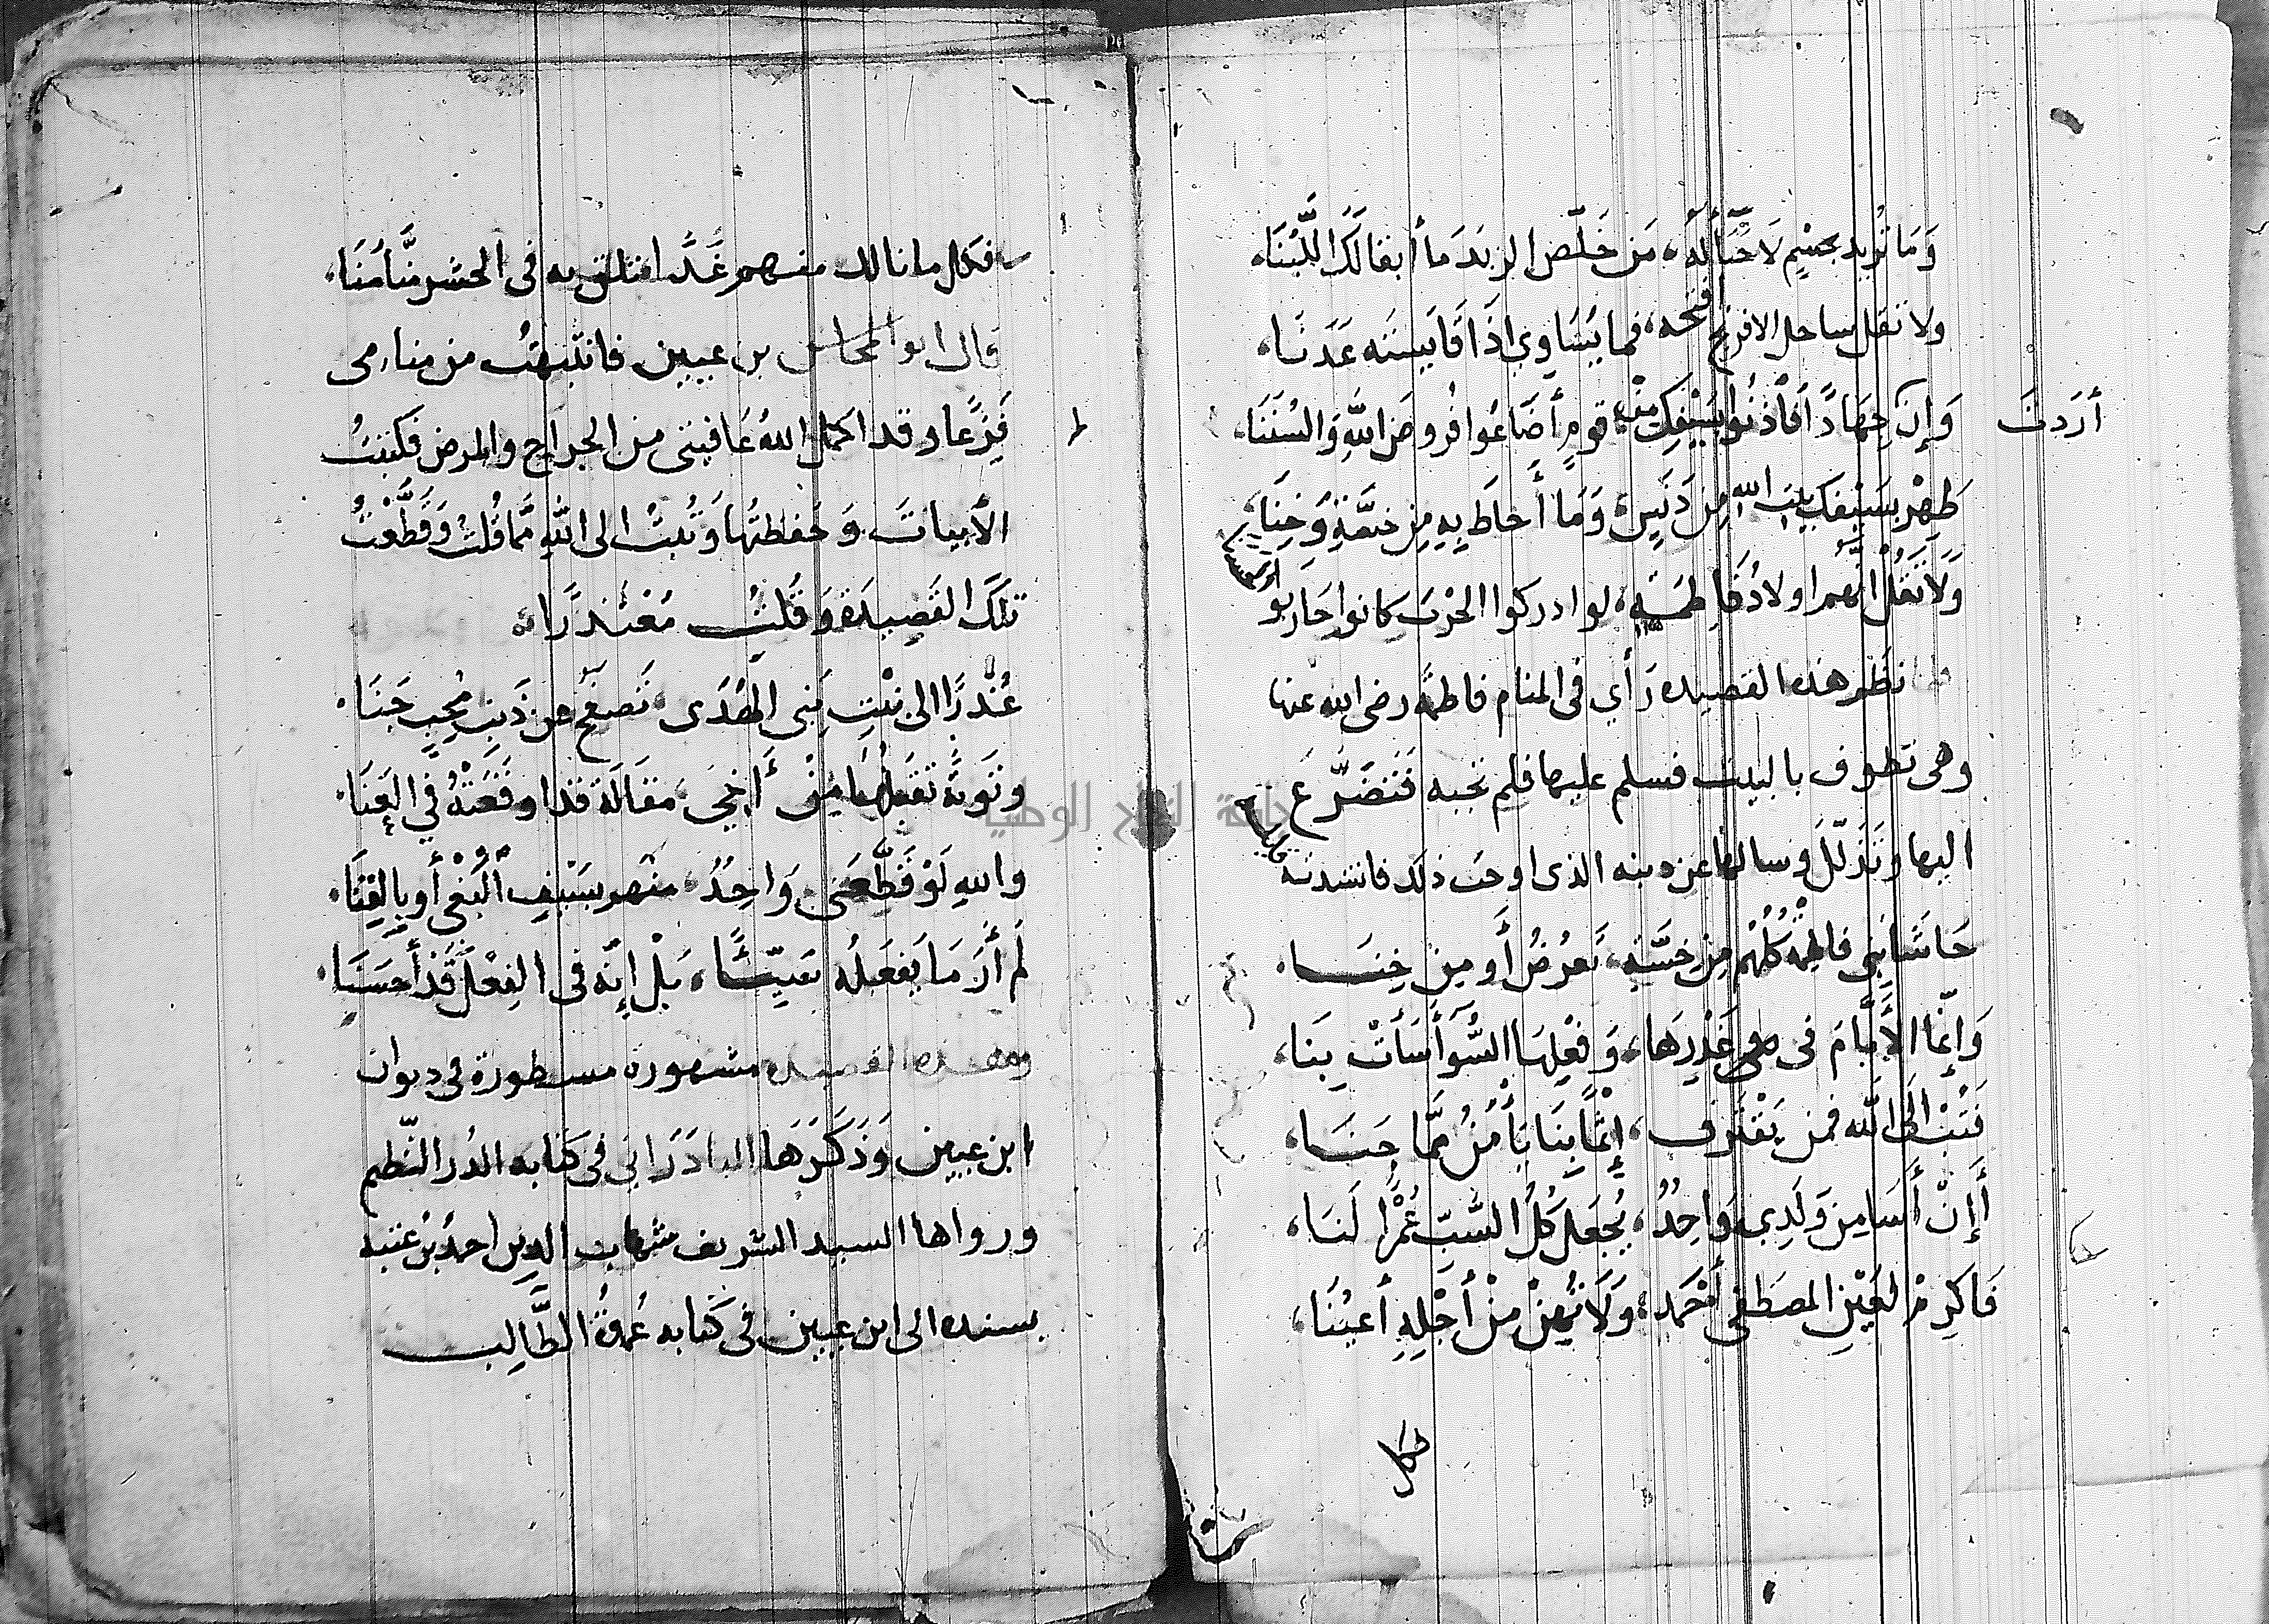 وَمَا تُرِيدُ بجِسْمٍ لَا حَيَاةَ لَهُ، مَن خَلّص الزبَد مَا أبقا لَكَ اللَّبَنَا،
ولا تقل ساحل الافرنج افتحه، فما يُسَاوِي اذَا قَايَسته عَدَنَا،
أرَدتَ
وَإِن جِهَادًا فَأْذنُوا بسَيْفِك مِنْ، قومٍ أضَاعُوا فُروضَ اللهِ وَالسُنَنَا،
طَهِّرْ بسَيفِكَ بيت الله مِن دَنَسٍ، وَمَا أَحَاطَ بِهِ مِن خِسَّةٍ وَخِنَا،
وَلَا تَقُلْ انَّهم اولادُ فَاطِمَةٍ، لو ادركوا الحَرْبَ كانوا حَاربُوا
نظَم هذه القصيده رَأي في المنام فاطمَه رضى الله عنها
وهى تطوف بالبيت فسلم عليها فلم تجبه فَتضَرّعَ
اليها وتَذلّلَ وسالها عن دنبه الذى اوجب ذلك فانشدته
حَاشَا بَنِي فاطمَة كُلّهُم مِن خِسَّةٍ، تَعرُضُ أَو مِن خِنَا.
وَإنّما الأَيَّامَ في غَدْرِهَا، وَفِعْلِهَا السُّوأ أَسَأتْ بِنَا،
فَتُبْ الَى اللّه فمن يَقْتَرِف، إثْمًا بِنَا يَأْمَنُ مِمَّا جَنَا،
أَإنْ أَسَا مِن وَلَدِي وَاحِدُ، يُجعَل كُلُ السَّبّ عَمْدًا لَنَا،
فَاكرِمْ لعَيْنِ المصطَفى أَحْمَد، وَلَا تُهِنْ مِنْ أَجْلِهِ أَعيُنَا،
فكل
فكل ما نالك منهم غدًا، تلق به في الحشر منَّا مُنَا.
قال ابو المحاسن بن عيين فانتبهتُ من منامى
فَزِعًا وقد اكمل اللهُ عَافيتى من الجراح والمرض فكتبتُ
الأبياتَ وَحَفظتُها وَتُبتُ الى اللهِ مِمَّا قُلتُ وَقَطَّعْتُ
تلكَ القَصِيدَةَ وَقُلتُ مُعْتذرًا،
عُذْرًا الى بنْتِ نَبِي الهُدَى، تَصفَحُ عن ذَنبِ مُحِبٍ جَنَا.
وتَوبَةً تقبَلُهَا مِنْ أَخِي، مَقَالَةٍ قد اوقَعَتهُ في العَنَا.
واللهِ لَوْ قَطَّعَنِى وَاحِدُ، منهم بسَيْفِ الْبَغْي أو بِالقِنَا.
لَم أَرَ مَا يَفعَلُه سَيّئًا، بَلْ إنّه في الفِعْل قَدْ أَحسَنَا.
وهذه القصيده مشهورة مسطورة في ديوان
ابن عيين وَذَكَرَهَا البادَرَانِي في كتابه الدُر النّظيم
ورواها السيد الشريف شهاب الدين احمدُ بنُ عنبه
بسنده الى ابن عيين في كتابه عُمدة الطَّالِب
جامعة النجاح الوطنية